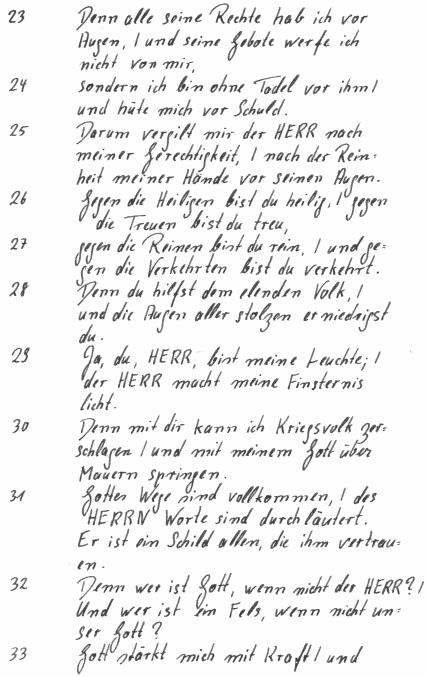 23 Denn alle seine Rechte hab ich vor
Augen, / und seine Gebote werfe ich
nicht von mir,
24 sondern ich bin ohne Tadel vor ihm /
und hüte mich vor Schuld.
25 Darum vergilt mir der HERR nach
meiner Gerechtigkeit, / nach der Rein=
heit meiner Hände vor seinen Augen.
26 Gegen die Heiligen bist du heilig, / gegen
die Treuen bist du treu,
27 gegen die Reinen bist du rein, / und ge=
gen die Verkehrten bist du verkehrt.
28 Denn du hilfst dem elenden Volk, /
und die Augen aller stolzen erniedrigst
du.
29 Ja, du, HERR, bist meine Leuchte; /
der HERR macht meine Finsternis
licht.
30 Denn mit dir kann ich Kriegsvolk zer=
schlagen / und mit meinem Gott über
Mauern springen.
31 Gottes Wege sind vollkommen, / des
HERRN Worte sind durchläutert.
Er ist ein Schild allen, die ihm vertrau=
en.
32 Denn wer ist Gott, wenn nicht der HERR? /
Und wer ist ein Fels, wenn nicht un=
ser Gott?
33 Gott stärkt mich mit Kraft / und